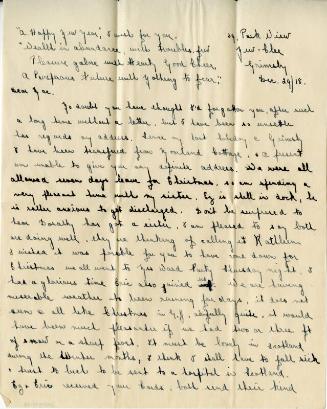 "A Happy New Year", I wish for you.
29, Park View
"Wealth in abundance, with troubles few
New Clee
Pleasure galore with Hearty Good Cheer
Grimsby
A Prosperous Future with Nothing to fear."
Dec. 29/18.
Dear
No doubt you have thought I'd forgotten you, after such
a long time without a letter, but I have been so unsettled
as regards my address. Since my last holiday in Grimsby
I have been transferred from Cottage, & at present
am unable to give you any definite address. We were all
allowed seven days leave for Christmas, so am spending a
very pleasant time with my sister. is still in dock, he
is rather anxious to get discharged. Don't be surprised to
hear Dorothy has got a sister, & am pleased to say both
are doing well, they are thinking of calling it Kathleen
I wished it was possible for you to have come down for
Christmas we all went to Party Thursday night, &
had a glorious time Eric also joined us. We are having
miserable weather to been running for days, it does not
seem at all like Christmas in it would
have been much pleasanter if we had two or three ft
of snow or a sharp frost. It must be lovely in Scotland
during the Winter months, I think I shall have to fall sick
& trust to luck to be sent to a hospital in Scotland.
& Eric received your Cards, both send their kind